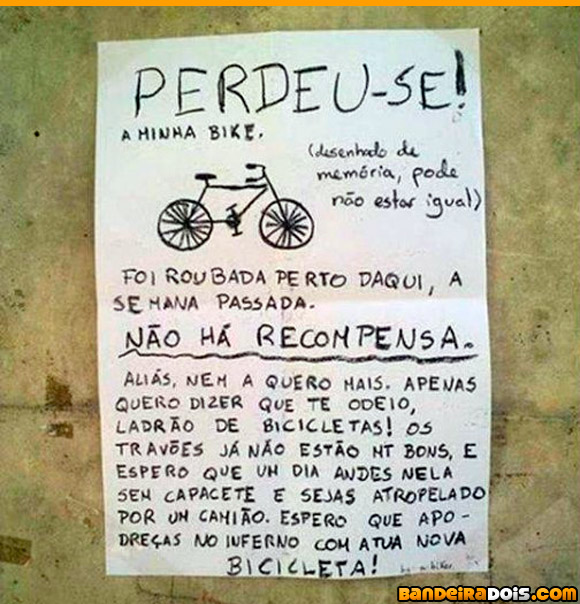 PERDEU-SE!
A MINHA BIKE.
(desenhado de
memória, pode
não estar igual)
FOI ROUBADA PERTO DAQUI, A
SEMANA PASSADA.
NÃO HÁ RECOMPENSA.
ALIÁS, NEM A QUERO MAIS. APENAS
QUERO DIZER QUE TE ODEIO,
LADRÃO DE BICICLETAS! OS
TRAVÕES JÁ NÃO ESTÃO MT BONS, E
ESPERO QUE UM DIA ANDES NELA
SEM CAPACETE E SEJAS ATROPELADO
POR UM CAMIÃO. ESPERO QUE APO-
DREÇAS NO INFERNO COM A TUA NOVA
BICICLETA!
BANDEIRADOIS.COM